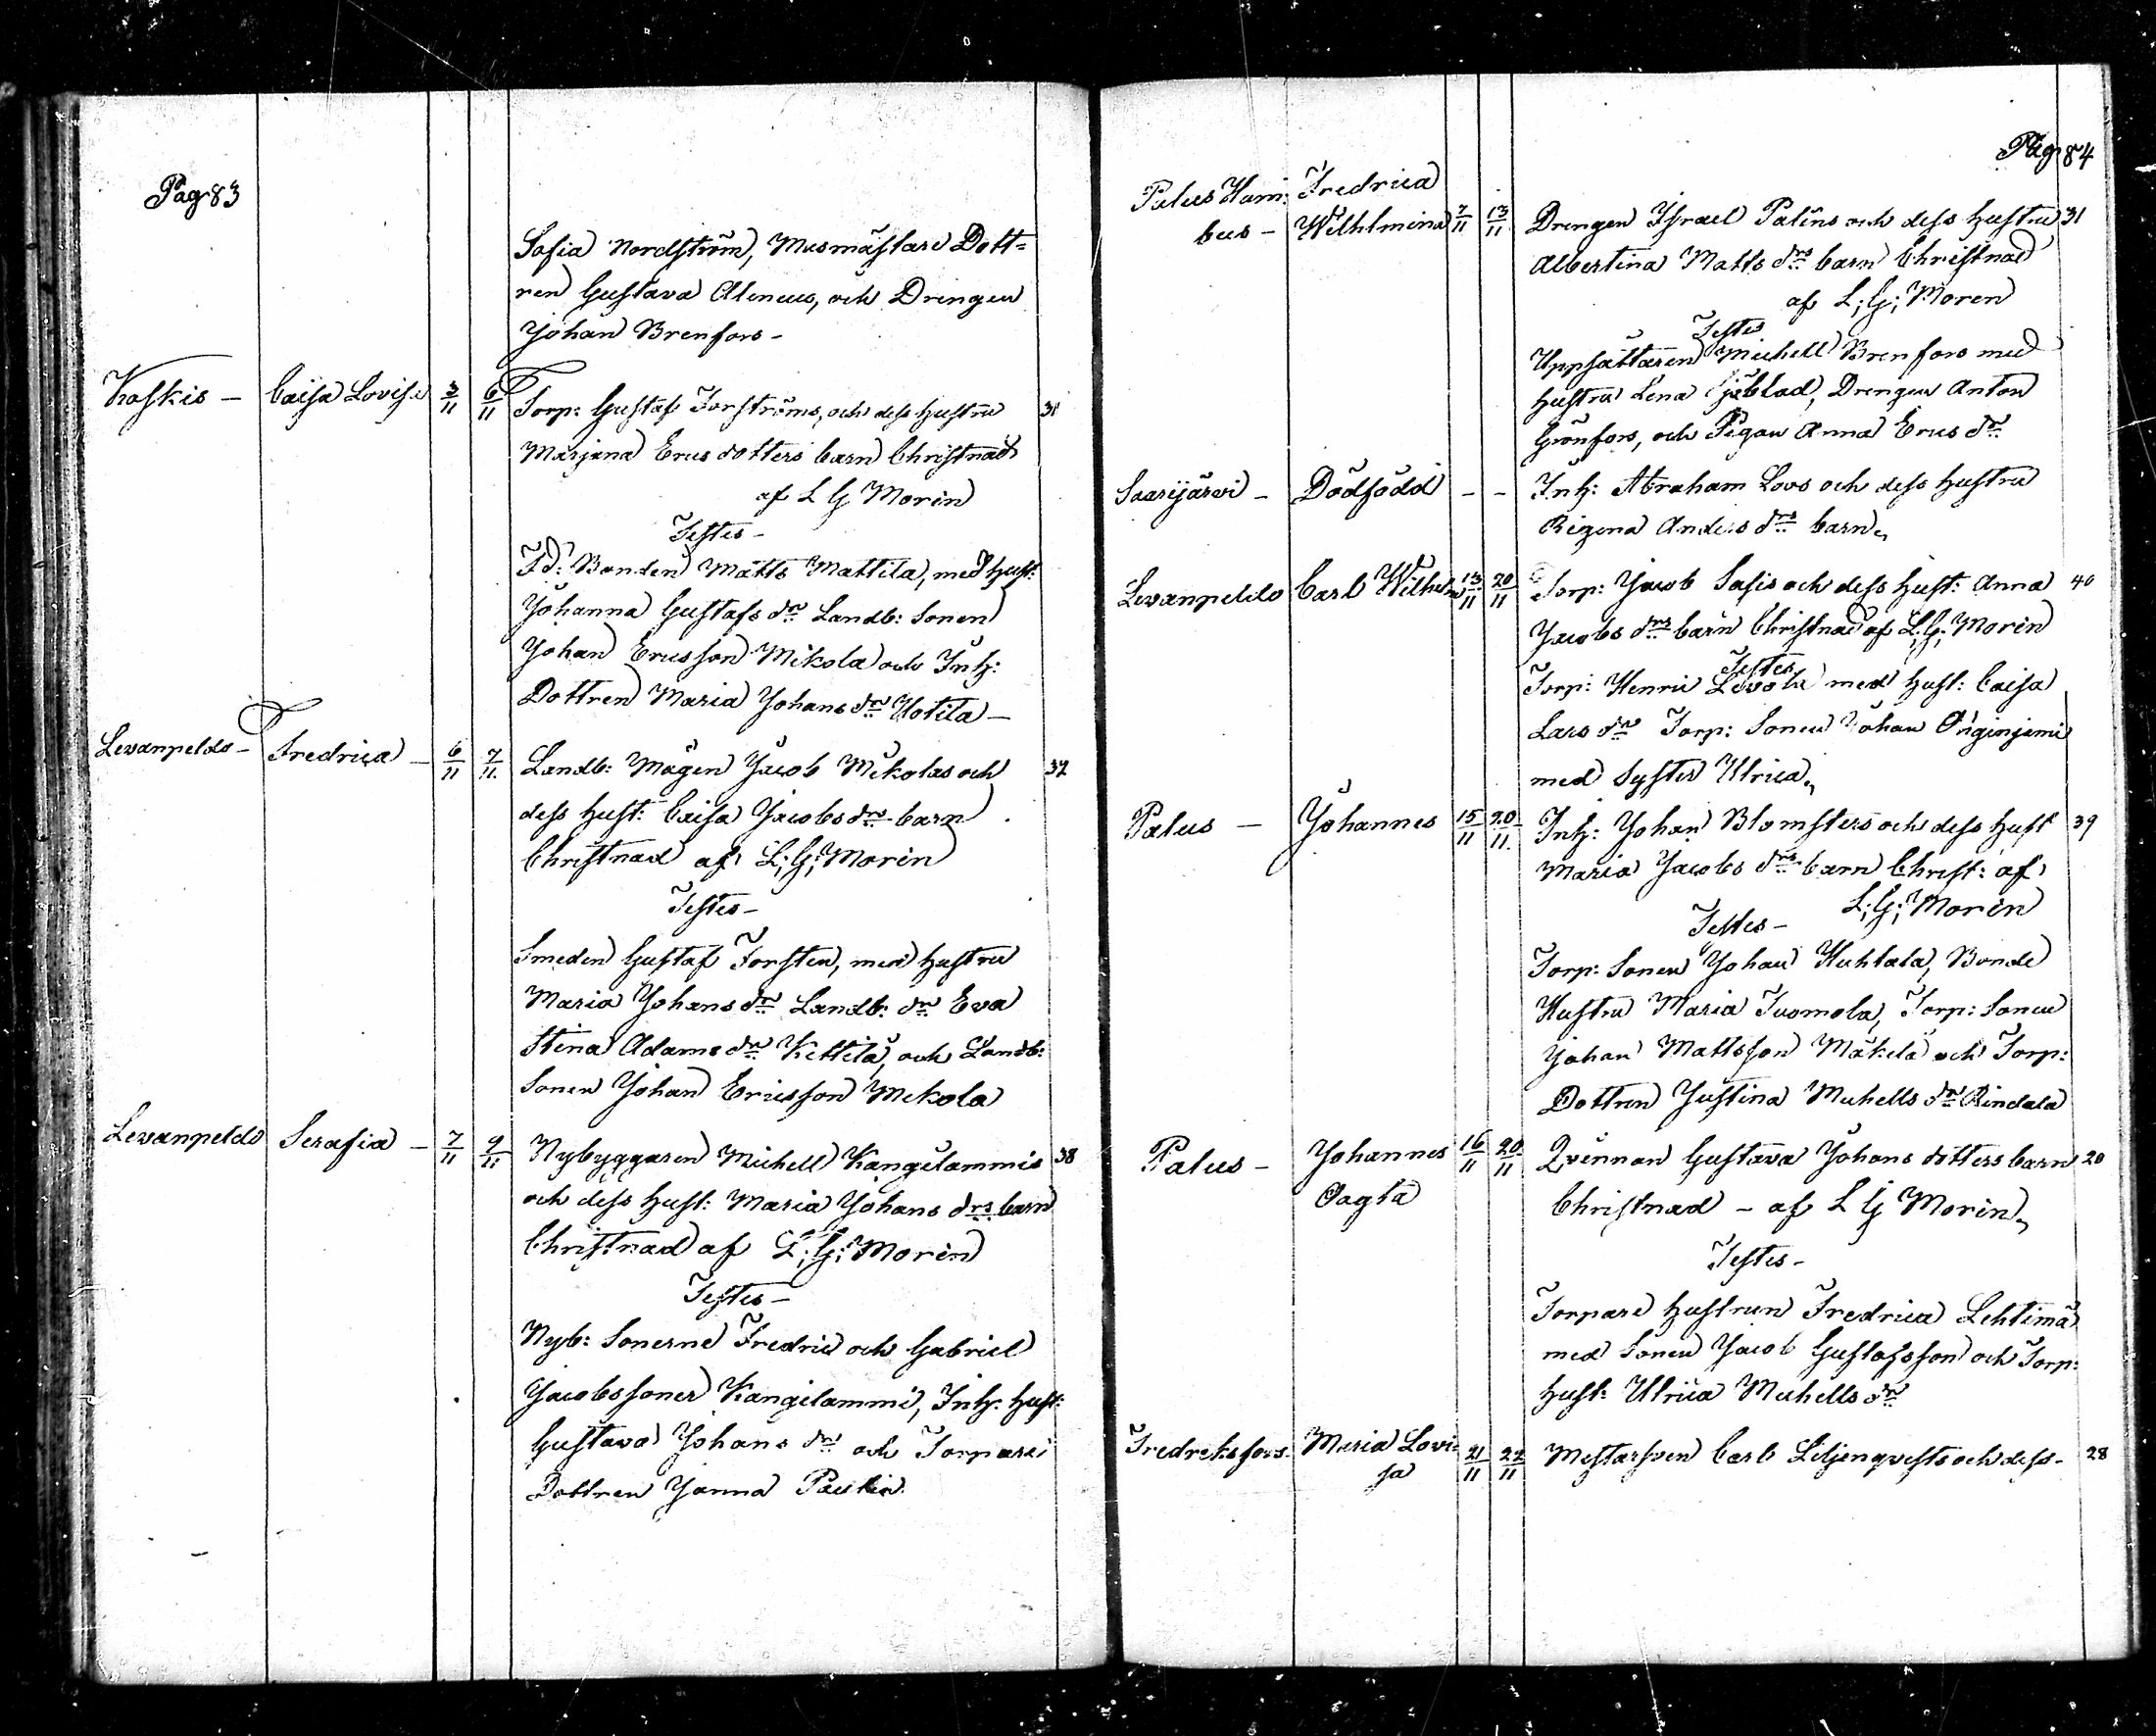 Pag 83
Sofia Nordström, Masmästare Dott=
ren Gustava Aleneus, och Drengen
Johan Brenfors -
Koskis - Caisa Lovisa 3/11 6/11 Torp: Gustaf Forströms, och dess hustru 31
Marjana Ericsdotters barn Christnad
af L G Morin
Testes -
Fd: Bonden Matts Mattila, med hust:
Johanna Gustafs dr Landb: Sonen
Johan Ericsson Mikola och Inh:
Dottren Maria Johans dr Hotila -
Levanpeldo - Fredrica - 6/11 7/11 Landb: Mågen Jacob Mikolas och 32
dess hust: Caisa Jacobs drs barn
Christnad af L; G; Morin
Testes -
Smeden Gustaf Torsten, med hustru
Maria Johans dr Landb: dr Eva
Stina Adams dr Kettilä, och Landb:
Sonen Johan Ericsson Mikola
Levanpeldo Serafia - 7/11 9/11 Nybyggaren Michell Kangilammis 38
och dess hust: Maria Johans drs barn
Christnad af L; G; Morin
Testes -
Nyb: Sonerne Fredric och Gabriel
Jacobssoner Kangilammi, Inh: hust:
Gustava Johans dr och Torpare
Dottren Janna
Pag 84
Palus Ham= Fredrica
bus - Wilhlmina 7/11 13/11 Drengen Israel Palins och dess hustru 31
Albertina Matts drs barn Christnad
af L; G; Moren
Testes
Uppsättaren Michell Brenfors med
hustru Lena Sjöblad, Drengen Anton
Grönfors, och Pigan Anna Erics dr
Saarijärvi - Dödfödd - - Inh: Abraham Lovs och dess hustru
Rigina Anders drs barn
Levanpeldo Carl Wilhelm 13/11 20/11 Torp: Jacob Safis och dess hust: Anna 40
Jacobs drs barn Christnad af L; G; Morin
Testes
Torp: Henric med hust: Caisa
Lars dr Torp: Sonen Johan
med Syster Ulrica
Palus - Johannes 15/11 20/11 Inh: Johan Blomsters och dess hust 39
Maria Jacobs drs barn Christ: af
L; G; Morin
Testes -
Torp: Sonen Johan Huhtala, Bonde
Hustru Maria Tuomola, Torp: Sonen
Johan Mattsson Mäkelä och Torp:
Dottren Justina Michells dr Rindala
Palus - Johannes 16/11 20/11 Qvinnan Gustava Johans dotters barn 20
Oagta Christnad - af L G Morin
Testes -
Torpare hustrun Fredrica Lehtimä
med Sonen Jacob Gustafsson och Torp:
hust: Ulrica Michells dr
Fredreksfors Maria Lovi= 21/11 22/11 Mestarsven Carl Liljenqvists och dess - 28
sa